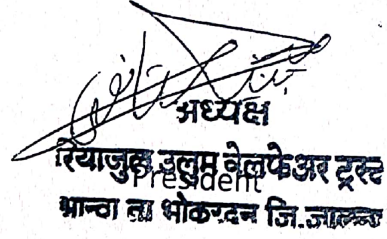 अध्यक्ष
रियाजुल उलुम वेलफेअर ट्रस्ट
President
ता भोकरदन जि.जालना